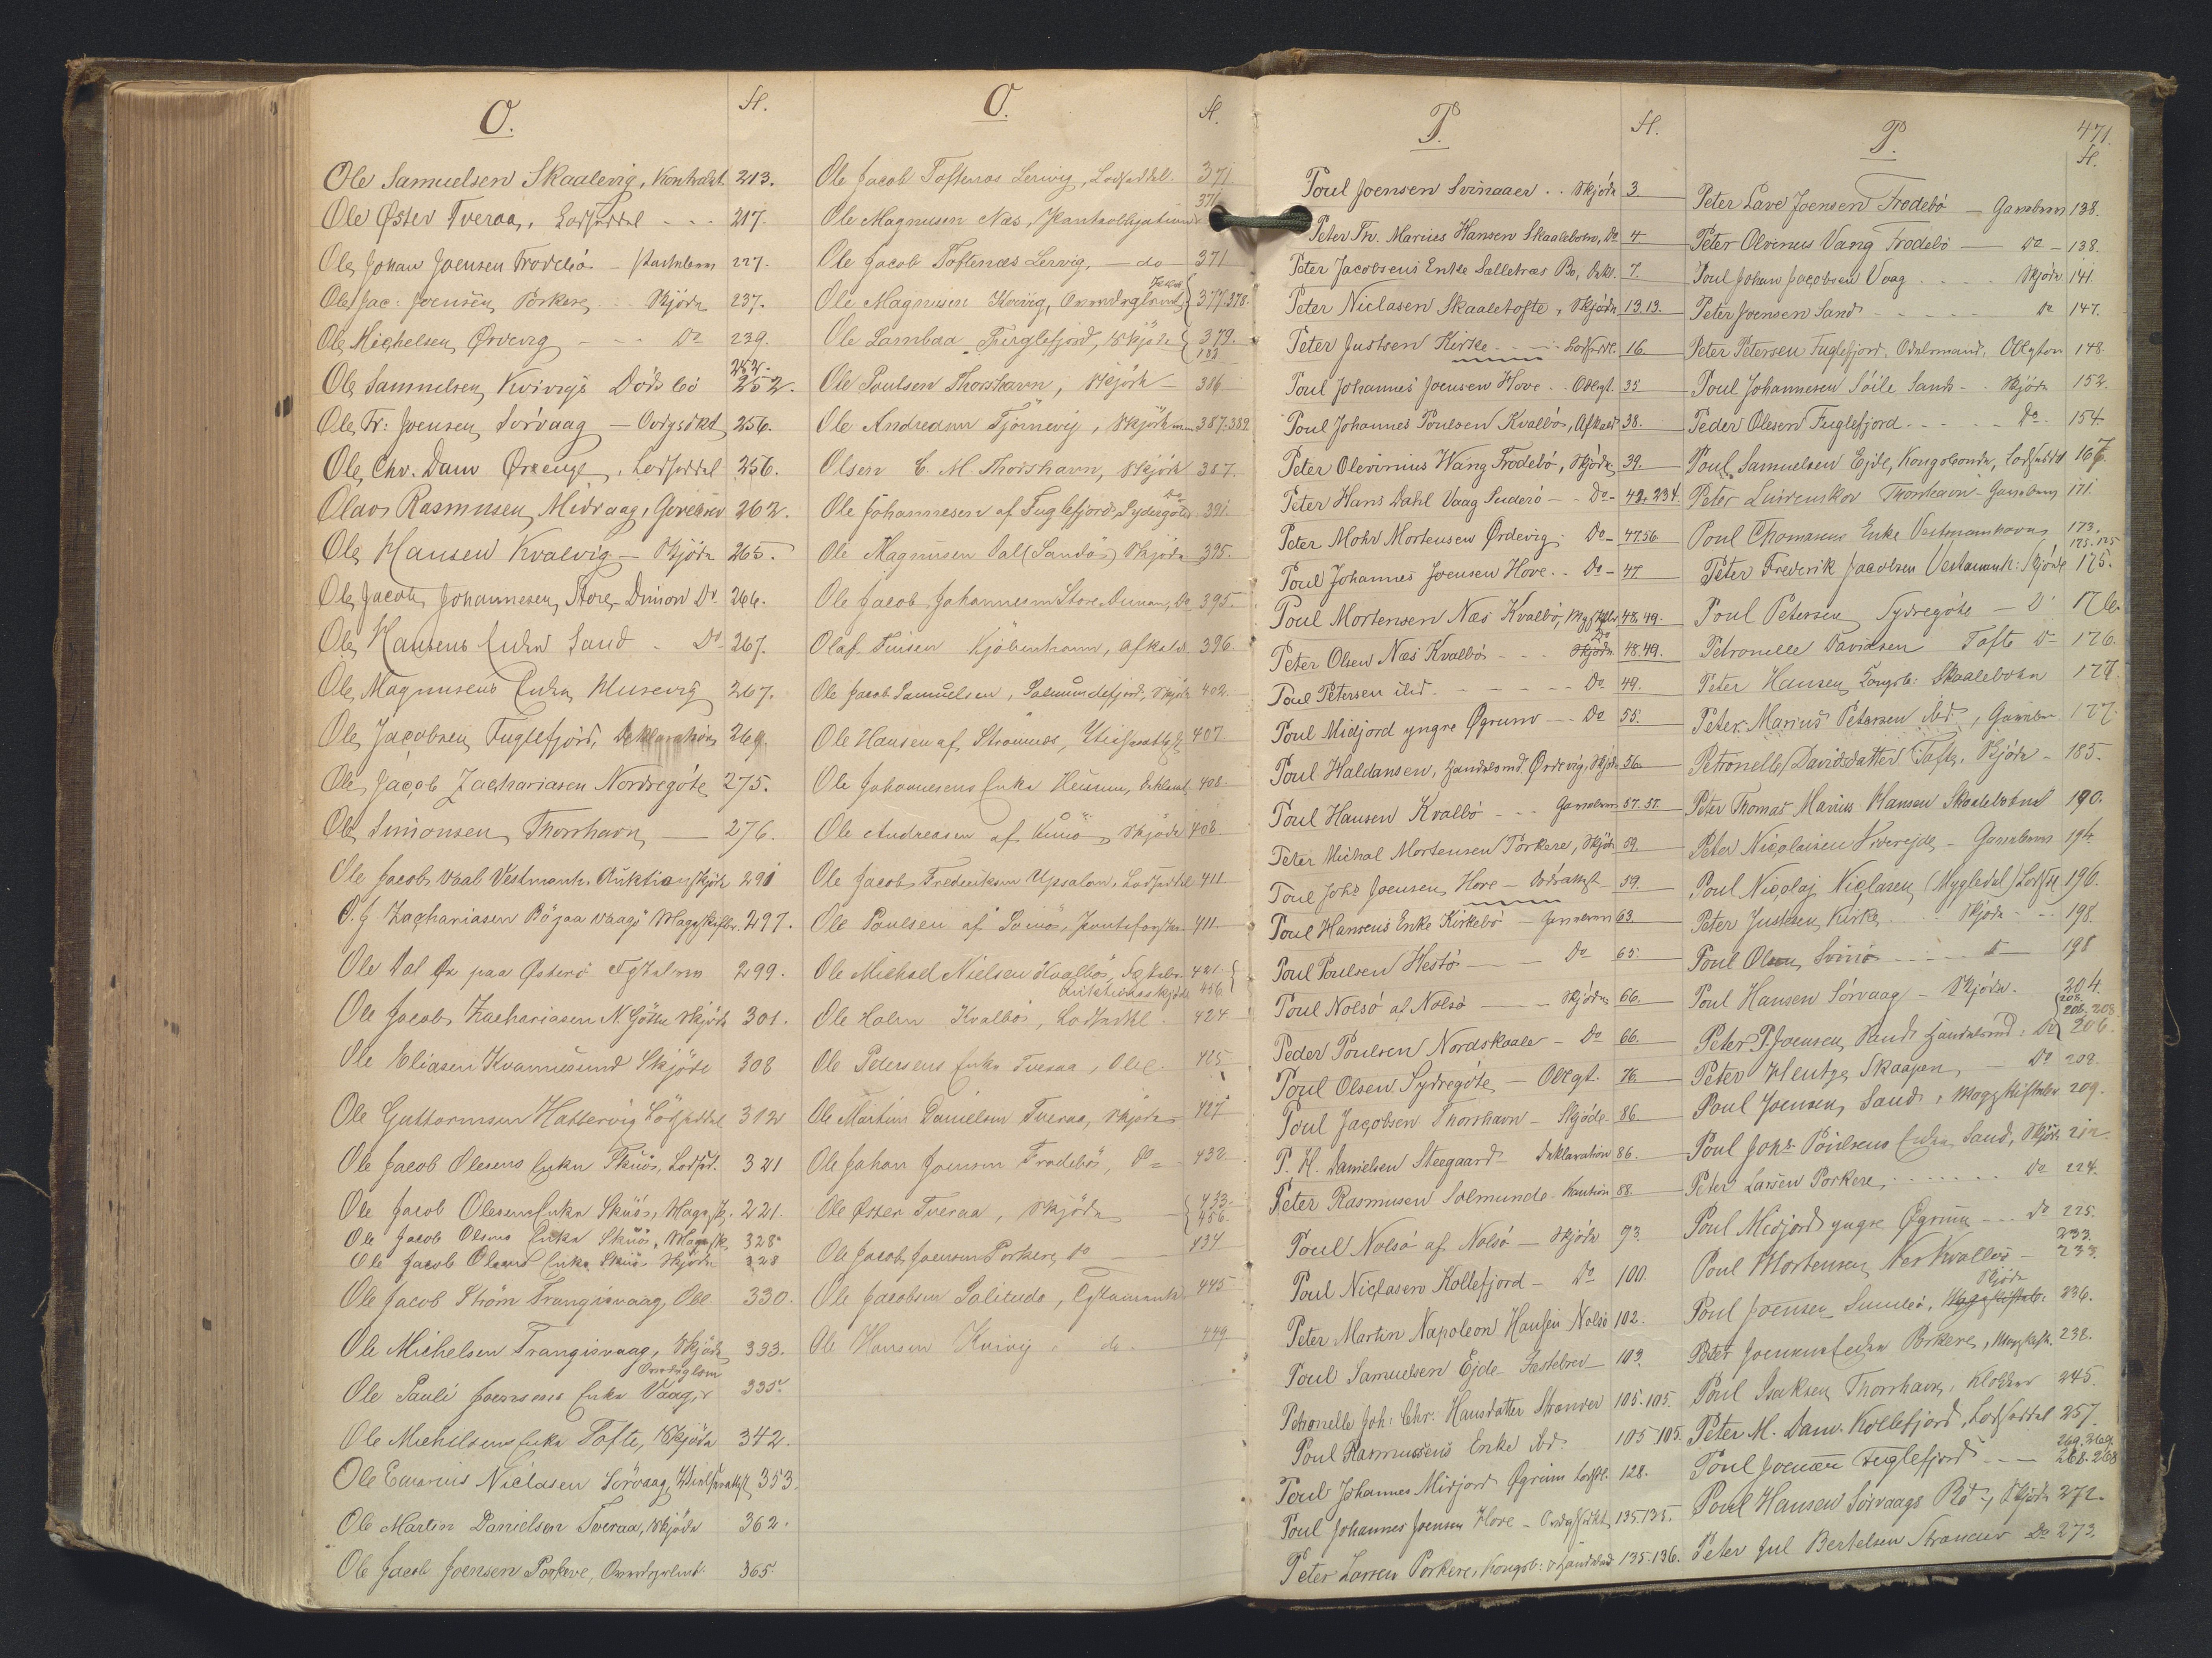 O.
H.
Ole Samuelsen Skaalevig, Kontrakt 213.
Ole Øster Tveraa, Lodseddel - - - 217.
Ole Johan Joensen Frodebö - 227.
Ole Jac: Joensen Porkere - Skjöde 237.
Ole Michelsen Ørdevig - - - Do 239.
252.
Ole Samuelsen Kvivigs Döds bö 252.
Ole Fr: Joensen, Sörvaag - 256.
Ole Chr. Dam Ørenge, Lodseddel 256.
Olaus Rasmusen, Midvaag, Gavebrev 262.
Ole Hansen Kvalvig - Skjöde 265.
Ole Jacob Johannesen, Store Dimon Do 266.
Ole Hansens Enke Sand - Do 267.
Ole Magnusens Enke Husevig 267.
Ole Jacobsen Fuglefjord, Deklaration 269.
Ole Jacob Zachariasen Nordregöte 275.
Ole Simonsen Thorshavn - 276.
Ole Jacob Vaal Vestmanh. Auktionsskjöde 291
O. J. Zachariasen Böjaa Vaags 297.
Ole Dal Øre paa Østerö 299.
Ole Jacob Zachariasen N. Göthe Skjöde 301.
Ole Eliasen Kvannesund Skjöde 308
Ole Guttormsen Hattervig Lodseddel 312
Ole Jacob Olesens Enke Skuö, Lodsed. 321
Ole Jacob Olesens Enke Skuö, 221.
Ole Jacob Olsens Enke Skuö, 328
Ole Jacob Olsens Enke Skuö Skjöde 328
Ole Jacob Ström Trangisvaag, Obl 330.
Ole Michelsen Trangisvaag, Skjöde 333.
Ole Pauli Joensens Enke Vaag, 335.
Ole Michelsens Enke Tofte, Skjöde 342.
Ole Emarius Niclasen Sörvaag, 353.
Ole Martin Danielsen Tveraa, Skjöde 362.
Ole Jacob Joensen Porkere, 365
O.
H.
Ole Jacob Toftenæs Lervig, Lodseddel. 371
371
Ole Magnusen Næs, Panteobligation
Ole Jacob Toftenæs Lervig, - do - 371
Ole Magnusen Kvivig, 377.378.
Ole Lambaa Fuglefjord, Skjöde 379.
133
Ole Poulsen Thorshavn, Skjöde - 386
Ole Andreasen Tjörnevig, Skjöde 387.389
Olsen C. M. Thorshavn, Skjöde 387.
Ole Johannesen af Fuglefjord, Sydregöte Do 391
Ole Magnusen Dal (Sandö) Skjöde 395.
Ole Jacob Johannesen Store Dimon, Do 395.
Olaf Finsen Kjöbenhavn, Afkald. 396.
Ole Jacob Samuelsen, Salmundefjord, Skjöde 402.
Ole Hansen af Strömnæs, 407
Ole Johannesens Enke Husum, Deklarat 408
Ole Andreasen af Kunö, Skjöde 408.
Ole Jacob Frederiksen Upsalon, Lodseddel 411
Ole Poulsen af Svinö, 411
Ole Michael Nielsen Kvalbö, 421.
Auktionsskjöde 456
Ole Holm Kvalbö, Lodseddel. 424
Ole Pedersens Enke Tveraa, Obl. 425
Ole Martin Danielsen Tveraa, Skjöde 427
Ole Johan Joensen Frodebö, Do - 432
Ole Øster Tveraa, Skjöde 433.
456.
Ole Jacob Joensen Porkere, Do 434
Ole Jacobsen Solitude, 445
Ole Hansen Kvivig - do. - 449
P.
H.
Poul Joensen Svinaaer . . Skjöde 3
Peter Th. Marius Hansen Skaalebotn, Do 4
Peter Jacobsens Enke Selletræs Bö, 7.
Peter Niclasen Skaaletofte, Skjöde 13.13.
Peter Justsen Kirke - - - Lodseddel. 16
Poul Johannes Joensen Hove . . Obligt. 35
Poul Johannes Poulsen Kvalbö, Afkald 38.
Peter Olevinius Wang Frodebö, Skjöde 39.
Peter Hans Dahl Vaag Suderö - - Do - 42.234.
Peter Mohr Mortensen Ørdevig. Do - 47.56
Poul Johannes Joensen Hove. - Do - 47
Poul Mortensen Næs Kvalbö, 48.49.
Peter Olsen Næs Kvalbö - - - Do 48.49.
Poul Petersen ibid. - - - - - Do 49.
Poul Midjord yngre Øgrum - - Do 55.
Poul Haldansen, Ørdevig, Skjöde 56.
Poul Hansen Kvalbö - - - Gavebrev 57.57.
Peter Michal Mortensen Porkere, Skjöde 59.
Poul Johs Joensen Hove - 59.
Poul Hansens Enke Kirkebö - 63.
Poul Poulsen Hestö - - Do 65.
Poul Nolsö af Nolsö - - - Skjöde 66.
Peder Poulsen Nordskaale - Do 66.
Poul Olsen Sydregöte, - Obligt. 76.
Poul Jacobsen Thorshavn - Skjöde 86
P. H. Danielsen Steegaard - Deklaration 86.
Peter Rasmusen Solmunde - Kaution 88.
Poul Nolsö af Nolsö - Skjöde 93.
Poul Niclasen Kollefjord - Do 100.
Peter Martin Napoleon Hansen Nolsö 102.
Poul Samuelsen Ejde - Fæstebrev 103.
Petronelle Joh: Chr: Hansdatter Strander 105.105.
Poul Rasmusens Enke ibd. 105.105.
Poul Johannes Midjord Øgrum 128.
Poul Johannes Joensen Hove - 135.135.
Peter Larsen Porkere, Kongsb: 135.136.
P.
471.
H.
Peter Lave Joensen Frodebö - Gavebrev 138.
Peter Olvinus Vang Frodebö - Do - 138.
Poul Johan Jacobsen Vaag . . . . Skjöde 141.
Peter Joensen Sand - - - - - Do 147.
Peter Petersen Fuglefjord, Odelsmand, 148.
Poul Johannesen Söile Sand - - Skjöde 152.
Peder Olesen Fuglefjord - - - - - Do. 154
Poul Samuelsen Ejde, Kongsbonde, Lodseddel 167.
Peter Thorshavn - Gavebrev 171.
Poul Thomasens Enke Vestmanhavn 173.
175.175
Peter Frederik Jacobsen Vestmanh: Skjöde 175.
Poul Petersen Sydregöte - 176.
Petronelle Davidsen Tofte Do - 176.
Peter Hansen Kongsb: Skaalebotn 177.
Peter Marius Petersen ibd, 177.
Petronelle Davidsdatter Tofte, Skjöde - 185.
Peter Thomas Marius Hansen Skaalebotn 190.
Peter Nicolaisen Viverejde - Gavebrev 194.
Poul Nicolaj Niclasen (Mygledal) 196.
Peter Justesen Kirke . . . . Skjöde - - 198.
Poul Olsen Svinö - - - - - 198
Poul Hansen Sörvaag - Skjöde. 204.
208.
206.208
Peter P. Joensen Sand Do 206.
Peter Hentze Skaapen - Do 209.
Poul Joensen Sand, 209.
Poul Johs Poulsens Enke Sand, Skjöde 212.
Peter Larsen Porkere, . . . . . . Do 224.
Poul Midjord yngre Øgrum - - - Do 225.
233.
Poul Mortensen Næs Kvalbö - 233.
Skjöde
Poul Joensen Sumbö, 236.
Peter Joensens Enke Porkere, 238.
Poul Isaksen Thorshavn, Klokker 245.
Peter M. Dam Kollefjord, Lodseddel 257.
Poul Joensen Fuglefjord - - - 268.268
Poul Hansen Sörvaags Bö, Skjöde 272.
Peter Jul Bertelsen Strander Do 273.